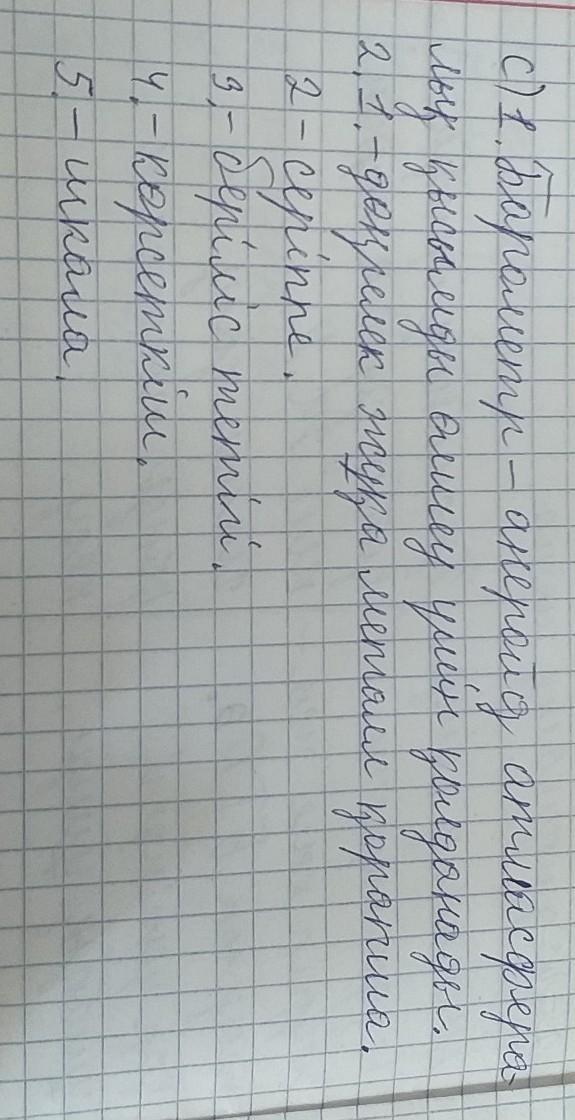 с) 1. Барометр – анероид атмасфера-
лық қысымды өлшеу үшін қолданады.
2, 1, – дөңгелек жұқа металл қорапша.
2 – серіппе.
3, – беріліс тетігі.
4, – көрсеткіш.
5, – шкала.